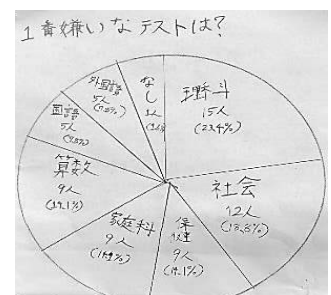 1番嫌いなテストは?
理科
15人
(23.4%)
社会
12人
(18.8%)
保健
9人
(14.1%)
家庭科
9人
算数
9人
(14.1%)
国語
5人
(7.8%)
外国語
5人
(7.8%)
なし